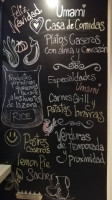 Feliz
Navidad
Umami
Casa de Comidas
Platos Caseros
con alma y Corazón
Especialidades
Umami
Carnes Grill y
patatas bravas
RICE
Postres
Caseros
Lemon Pie
Sacher
Verduras
de Temporada
y
Proximidad